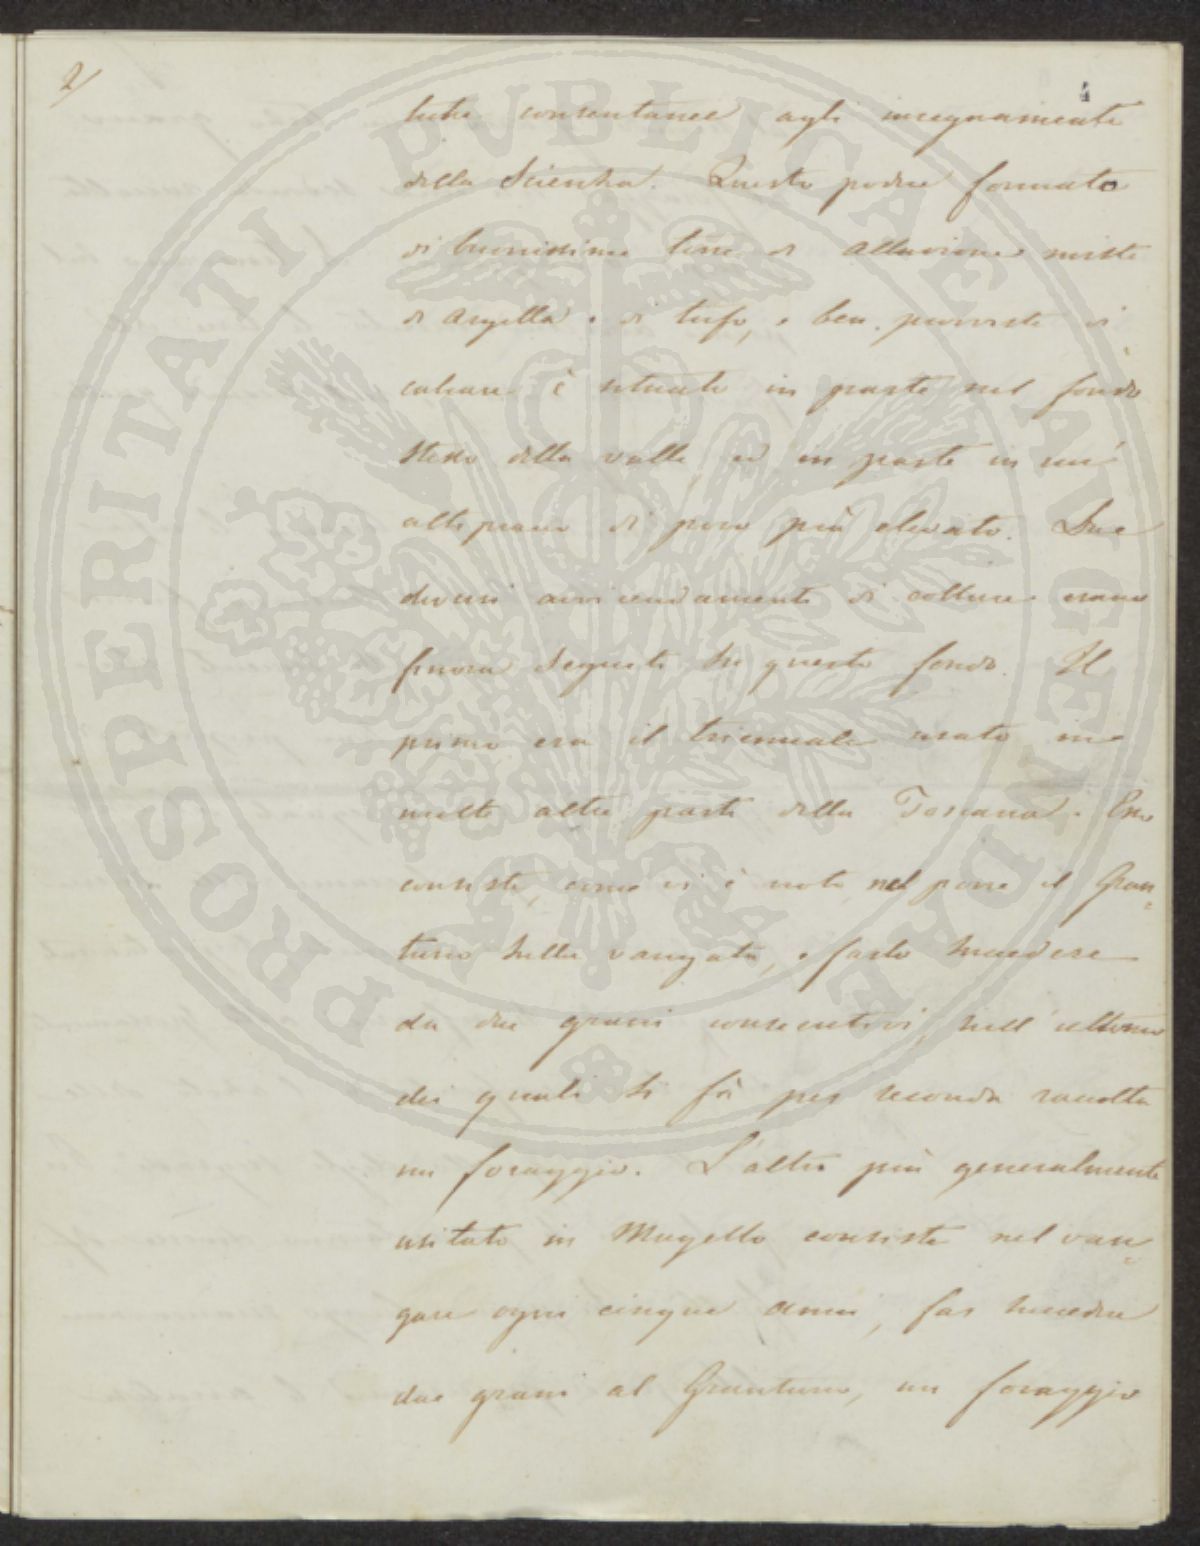 2/
4
tutte consentanee agli insegnamenti
della Scienza. Questo podere formato
di buonissime terre di alluvione miste
di argilla e di tufo, e ben provviste di
calcare è situato in parte nel fondo
stesso della valle, ed in parte in un'
altipiano di poco più elevato. Due
diversi avvicendamenti di colture erano
finora seguiti su questo fondo. Il
primo era il triennale usato in
molte altre parti della Toscana. Esso
consiste, come vi è noto, nel porre il Gran=
turco sulla vangata, e farlo succedere
da due grani consecutivi, sull'ultimo
dei quali si fà per seconda raccolta
un foraggio. L'altro più generalmente
usitato in Mugello consiste nel van=
gare ogni cinque anni, far succedere
due grani al Granturco, un foraggio
PROSPERITATI PVBLICAE AVGENDAE